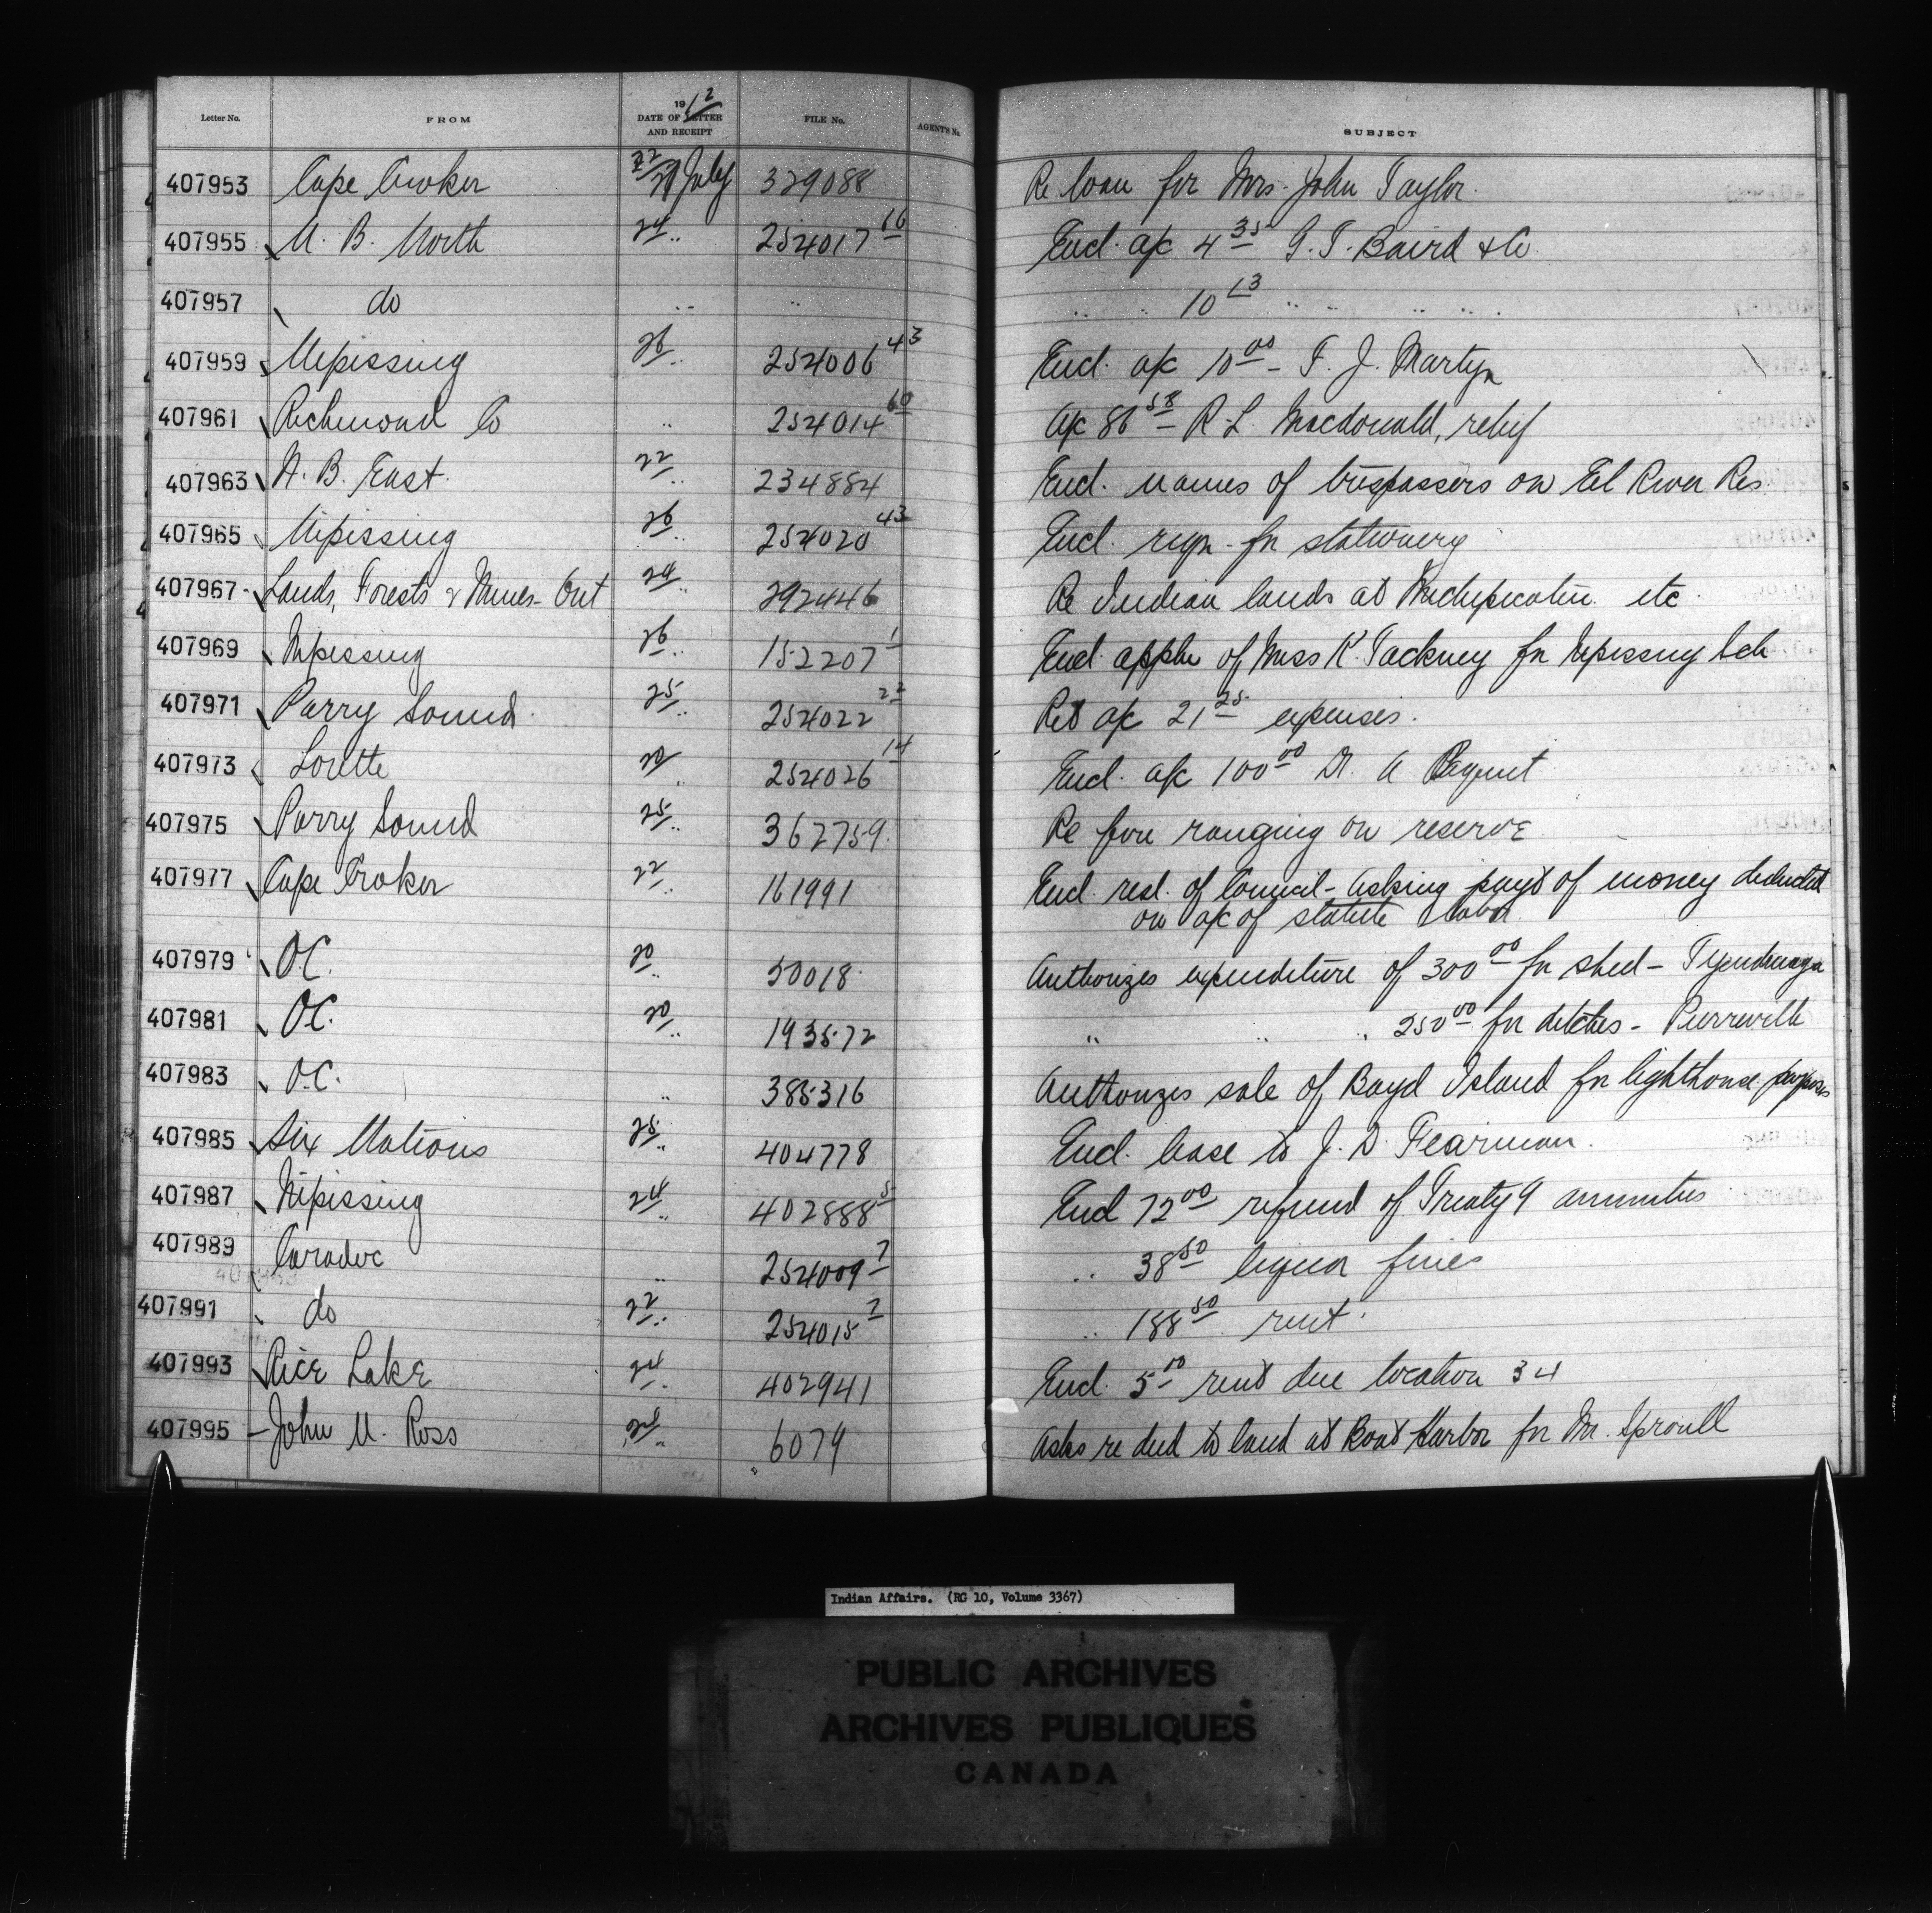 Letter No. FROM 1912 DATE OF LETTER AND RECEIPT FILE No. AGENT'S No. SUBJECT
407953 Cape Croker 22/27 July 329088 Re loan for Mrs. John Taylor.
407955 N. B. North 24 " 254017 16 Encl. a/c 4 35 G. T. Baird & Co
407957 do " " " " 10 13 " " " " "
407959 Nipissing 26 " 254006 43 Encl. a/c 10 00 - F. J. Martyn
407961 Richmond Co " 254014 60 a/c 86 58 - R. L. Macdonald, relief
407963 N. B. East. 22 " 234884 Encl. names of trespassers on Eel River Res.
407965 Nipissing 26 " 254020 43 Encl. reqn. for stationery
407967 Lands, Forests & Mines - Ont 24 " 292446 Re Indian lands at Michipicoten etc.
407969 Nipissing 26 " 152207 1 Encl. appln of Miss K. Tackney for Nipissing Sch
407971 Parry Sound 25 " 254022 22 Ret a/c 21 25 expenses.
407973 Lorette " 254026 14 Encl. a/c 100 00 A
407975 Parry Sound 25 " 362759. Re fire ranging on reserve
407977 Cape Croker 22 " 161991 Encl. resl. of Council - asking payt of money deducted
on a/c of statute labor
407979 O.C. 20 " 50018. Authorizes expenditure of 300 00 for shed - Tyendinaga
407981 O.C. 20 " 193572 " " " 250 00 for ditches - Pierreville
407983 O.C. " 385316 Authorizes sale of Boyd Island for lighthouse purposes
407985 Six Nations 25 " 404778 Encl. lease to J. D. Fearman.
407987 Nipissing 24 " 402888 5 Encl 72 00 refund of Treaty 9 annuities
407989 Caradoc " 254009 7 " 38 50 liquor fines
407991 do 22 " 254015 7 " 188 50 rent.
407993 Rice Lake 24 " 402941 Encl. 5 00 rent due location 34
407995 - John U. Ross 24 " 6079 Asks re deed to land at Boat Harbor for Mr. Sproull
Indian Affairs. (RG 10, Volume 3367)
PUBLIC ARCHIVES
ARCHIVES PUBLIQUES
CANADA